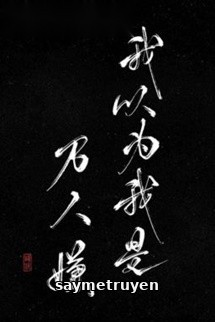 我以为我是
万人嫌
saymetruyen